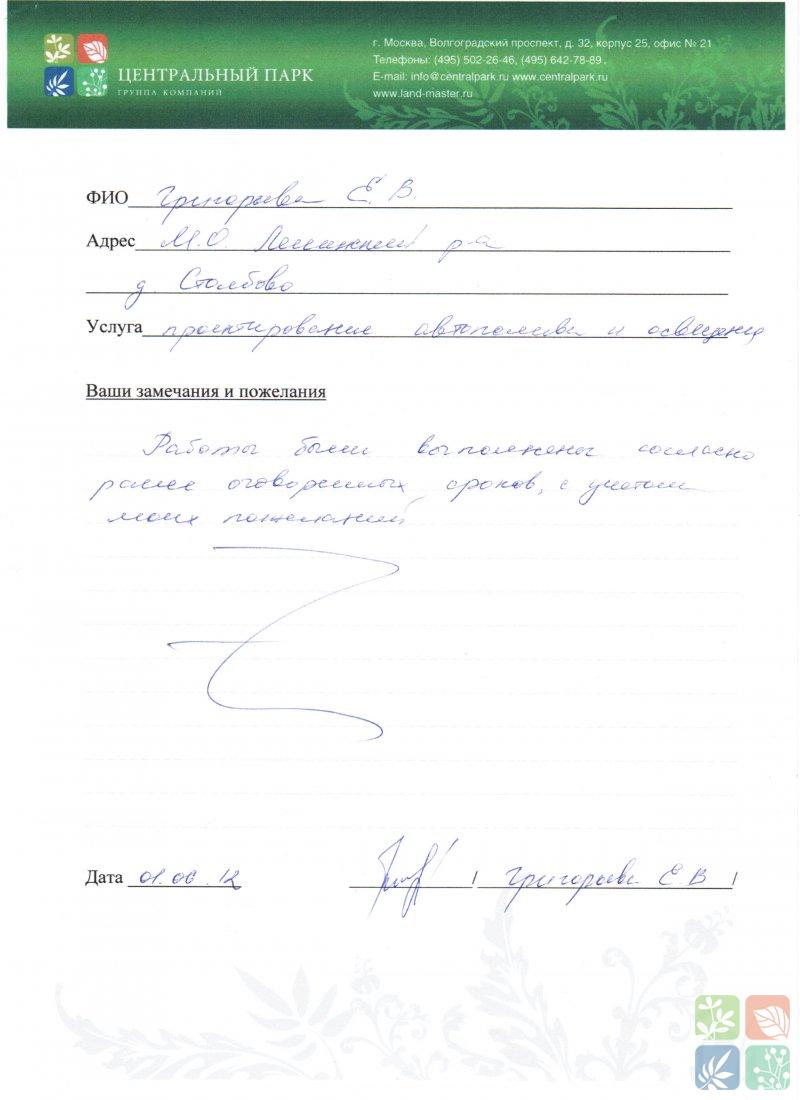 ЦЕНТРАЛЬНЫЙ ПАРК
ГРУППА КОМПАНИЙ
г. Москва, Волгоградский проспект, д. 32, корпус 25, офис № 21
Телефоны: (495) 502-26-46, (495) 642-78-89.
E-mail: info@centralpark.ru www.centralpark.ru
www.land-master.ru
ФИО Григорьева Е. В.
Адрес М.О. Ленинский р-н
д. Столбово
Услуга проектирование автополива и освещения
Ваши замечания и пожелания
Работы были выполнены согласно
ранее оговоренных сроков, с учетом
моих пожеланий
Дата 01.06.12 / Григорьева Е В /